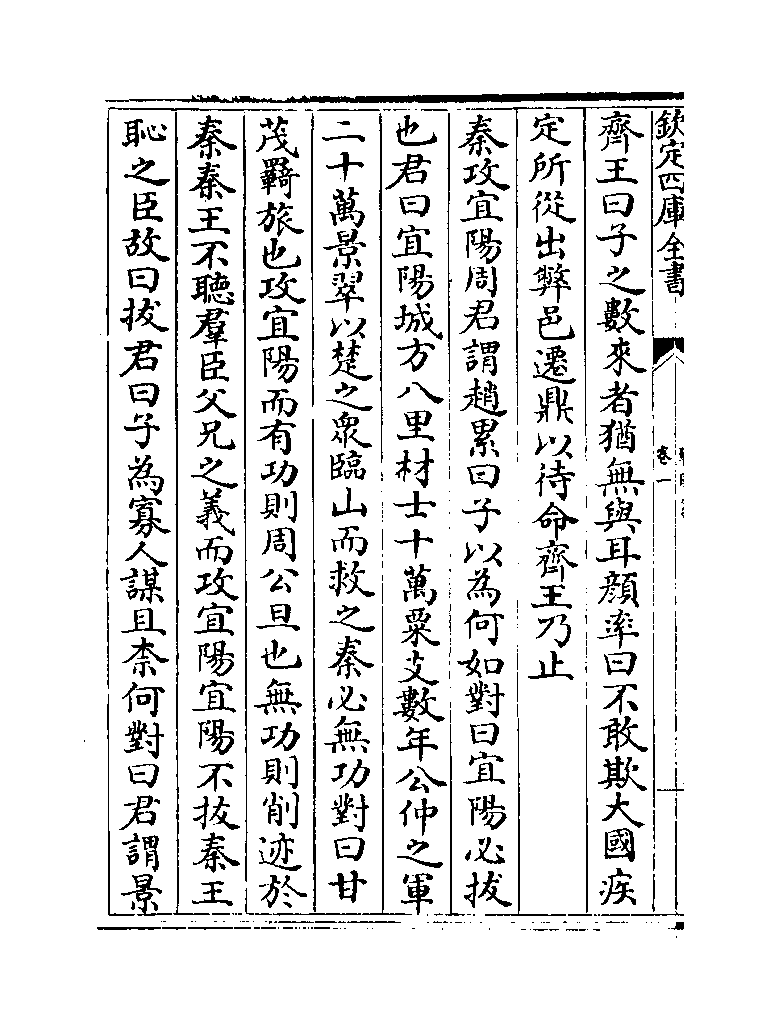 欽定四庫全書
卷一
齊王曰子之數來者猶無與耳顔率曰不敢欺大國疾
定所從出弊邑遷鼎以待命齊王乃止
秦攻宜陽周君謂趙累曰子以為何如對曰宜陽必拔
也君曰宜陽城方八里材士十萬粟支數年公仲之軍
二十萬景翠以楚之衆臨山而救之秦必無功對曰甘
茂羈旅也攻宜陽而有功則周公旦也無功則削迹於
秦秦王不聽羣臣父兄之義而攻宜陽宜陽不拔秦王
恥之臣故曰拔君曰子為寡人謀且柰何對曰君謂景